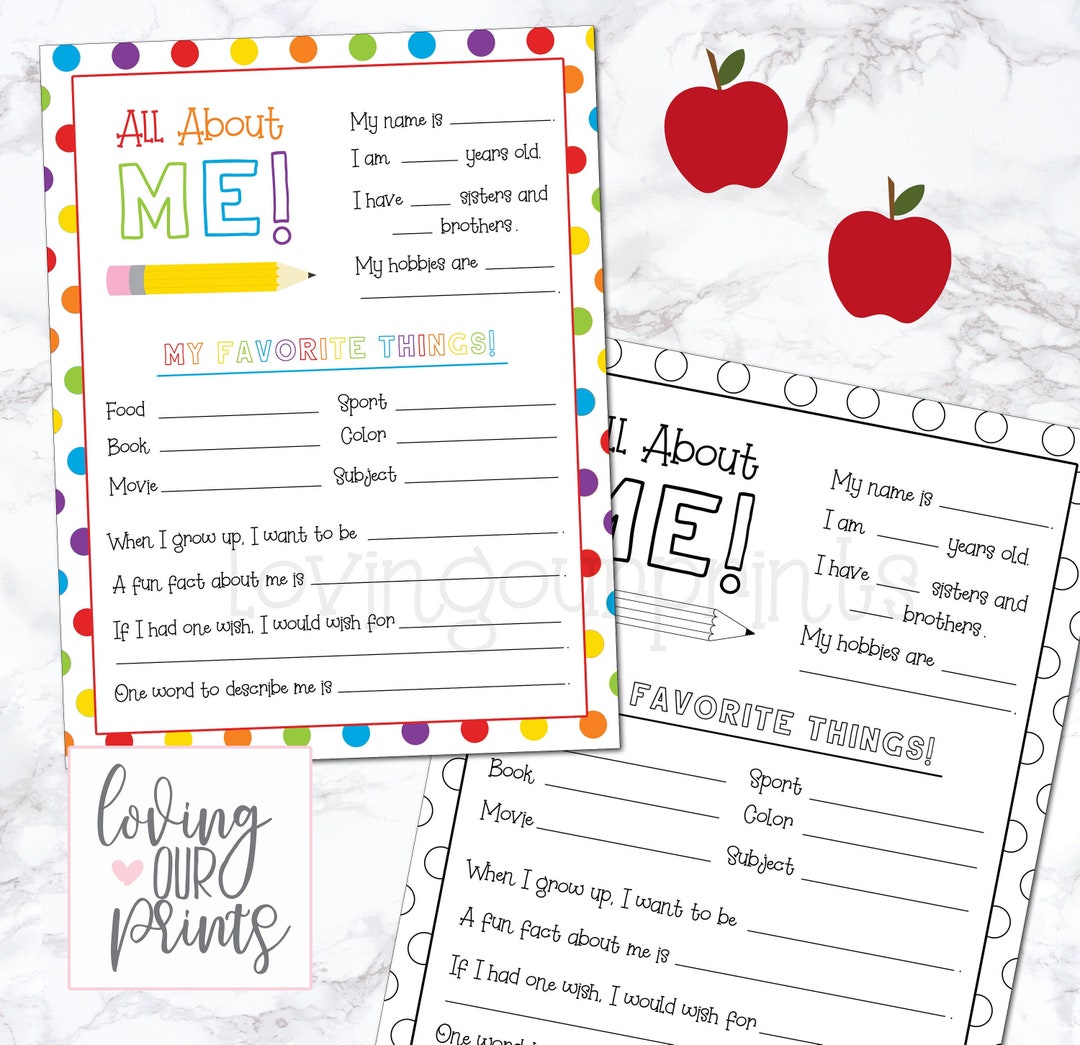 All About
ME!
My name is ____________.
I am ______ years old.
I have _____ sisters and
_____ brothers.
My hobbies are ________
______________________.
MY FAVORITE THINGS!
Food ________________ Sport ________________
Book ________________ Color ________________
Movie ________________ Subject ________________
When I grow up, I want to be ________________.
A fun fact about me is ________________________.
If I had one wish, I would wish for ________________
______________________________________________.
One word to describe me is ______________________.
lovingourprints
ll About
ME!
My name is ____________.
I am ______ years old.
I have _____ sisters and
_____ brothers.
My hobbies are ________
______________________.
FAVORITE THINGS!
Book ________________ Sport ________________
Movie ________________ Color ________________
Subject ________________
When I grow up, I want to be ________________.
A fun fact about me is ________________________.
If I had one wish, I would wish for ________
One word
loving
OUR
prints